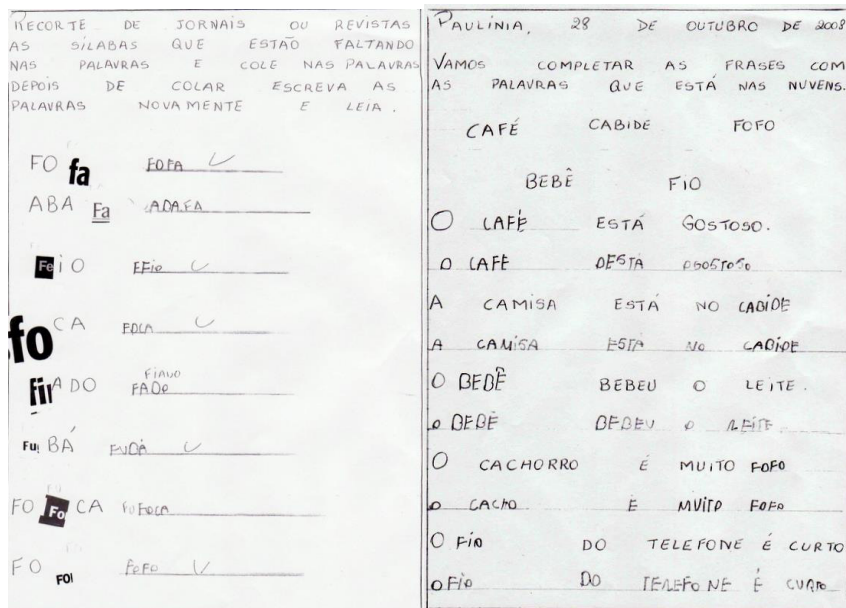 RECORTE DE JORNAIS OU REVISTAS
AS SÍLABAS QUE ESTÃO FALTANDO
NAS PALAVRAS E COLE NAS PALAVRAS
DEPOIS DE COLAR ESCREVA AS
PALAVRAS NOVAMENTE E LEIA.
FO fa FOFA
ABA Fa ADAFA
Fe i O FFIO
fo CA FOCA
fi ADO FIAVO
FADO
Fu BÁ FUDÁ
FO Fo CA FOFOCA
FO FO FOFO
PAULÍNIA, 28 DE OUTUBRO DE 2008
VAMOS COMPLETAR AS FRASES COM
AS PALAVRAS QUE ESTÁ NAS NUVENS.
CAFÉ CABIDE FOFO
BEBÊ FIO
O CAFÉ ESTÁ GOSTOSO.
O CAFÉ DESTA OGOSTOSO
A CAMISA ESTÁ NO CABIDE
A CAMISA ESTÁ NO CABIDE
O BEBÊ BEBEU O LEITE.
O BEBÊ BEBEU O LEITE
O CACHORRO É MUITO FOFO
O CACHO É MUITO FOFO
O FIO DO TELEFONE É CURTO
O FIO DO TELEFONE É CURTO